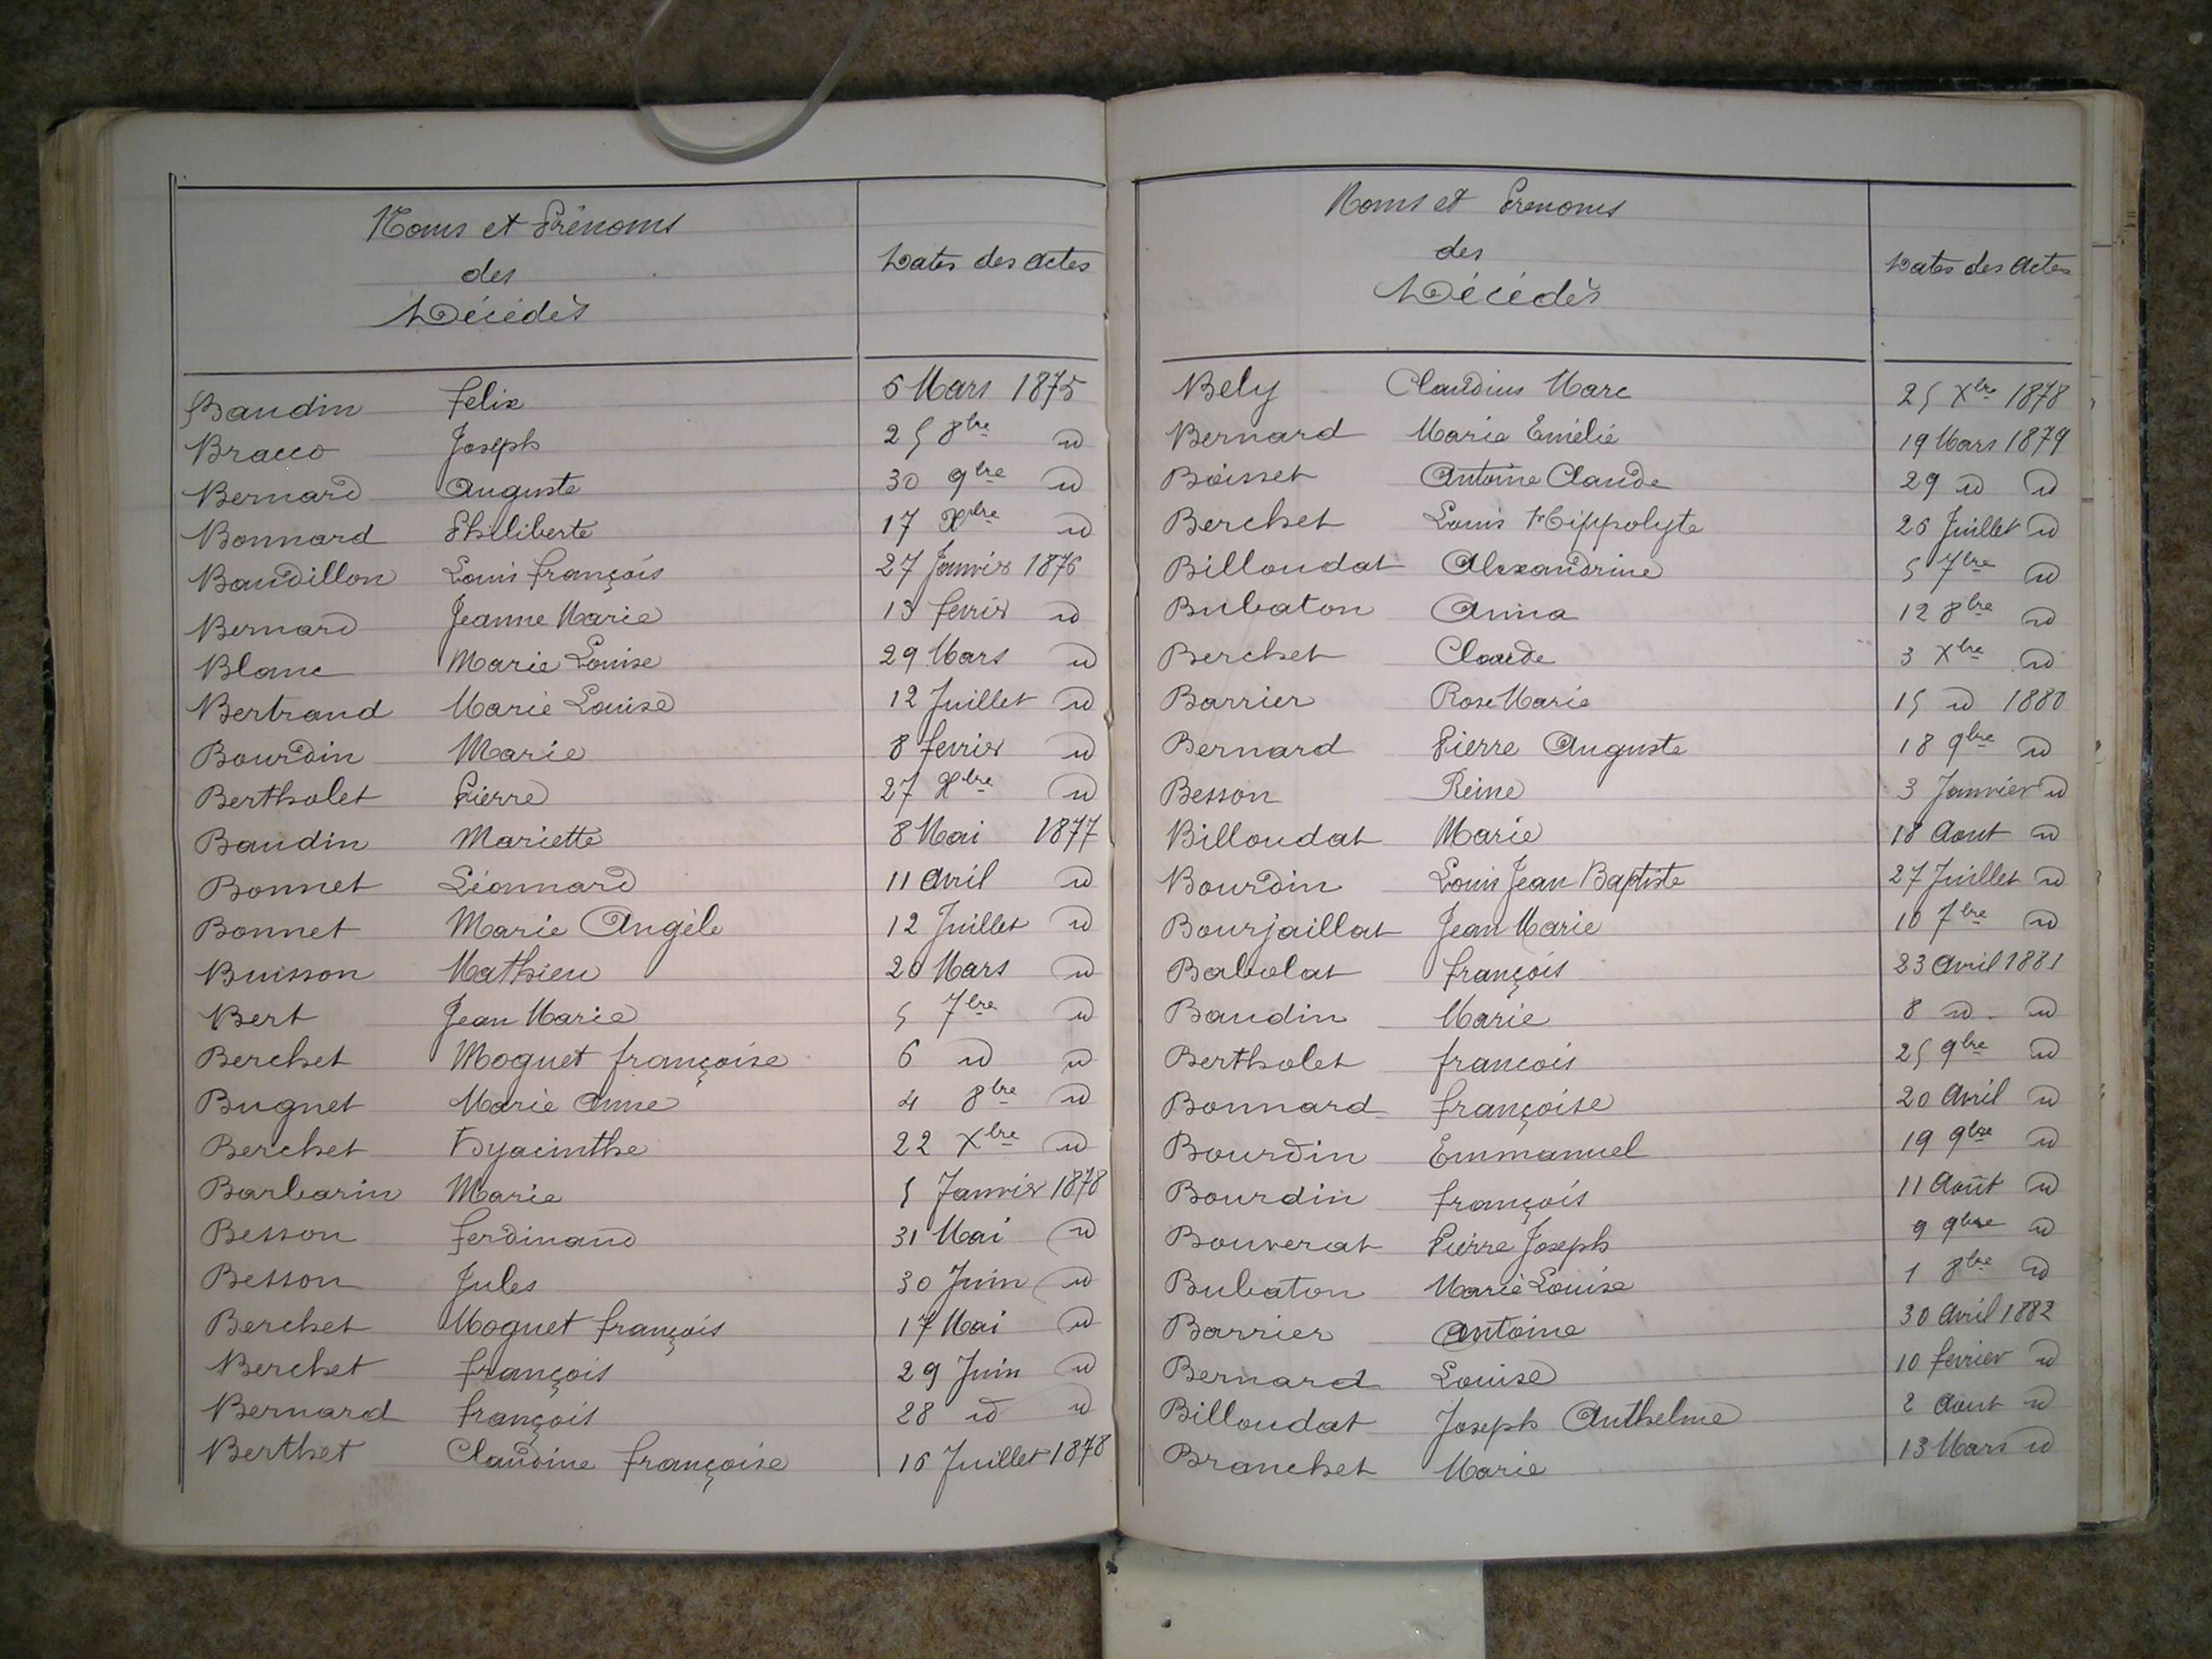 Noms et Prénoms
des
Décédés
Dates des actes
Baudin Felix 6 Mars 1875
Bracco Joseph 25 8bre id
Bernard Auguste 30 9bre id
Bonnard Philiberte 17 Xbre id
Baudillon Louis françois 27 Janvier 1876
Bernard Jeanne Marie 13 fevrier id
Blanc Marie Louise 29 Mars id
Bertrand Marie Louise 12 Juillet id
Bourdin Marie 8 fevrier id
Bertholet Pierre 27 Xbre id
Baudin Mariette 8 Mai 1877
Bonnet Léonnard 11 avril id
Bonnet Marie Angèle 12 Juillet id
Buisson Mathieu 20 Mars id
Bert Jean Marie 5 7bre id
Berchet Moguet françoise 6 id id
Bugnet Marie Anne 4 8bre id
Berchet Hyacinthe 22 Xbre id
Barbarin Marie 5 Janvier 1878
Besson ferdinand 31 Mai id
Besson Jules 30 Juin id
Berchet Moguet françois 17 Mai id
Berchet françois 29 Juin id
Bernard françois 28 id id
Berthet Claudine françoise 16 Juillet 1878
Noms et Prenoms
des
Décédés
Dates des Actes
Bely Claudius Marc 25 Xbre 1878
Bernard Marie Emélie 19 Mars 1879
Boisset Antoine Claude 29 id id
Berchet Louis Hippolyte 26 Juillet id
Billoudat Alexandrine 5 7bre id
Bubaton Anna 12 8bre id
Berchet Claude 3 Xbre id
Barrier Rose Marie 15 id 1880
Bernard Pierre Auguste 18 9bre id
Besson Reine 3 Janvier id
Billoudat Marie 18 Aout id
Bourdin Louis Jean Baptiste 27 Juillet id
Bourjaillat Jean Marie 10 7bre id
Babolat françois 23 avril 1881
Baudin Marie 8 id id
Bertholet francois 25 9bre id
Bonnard françoise 20 Avril id
Bourdin Emmanuel 19 9bre id
Bourdin françois 11 Août id
Bouverat Pierre Joseph 9 9bre id
Bubaton Marie Louise 1 8bre id
Barrier Antoine 30 Avril 1882
Bernard Louise 10 fevrier id
Billoudat Joseph Anthelme 2 Aout id
Branchet Marie 13 Mars id